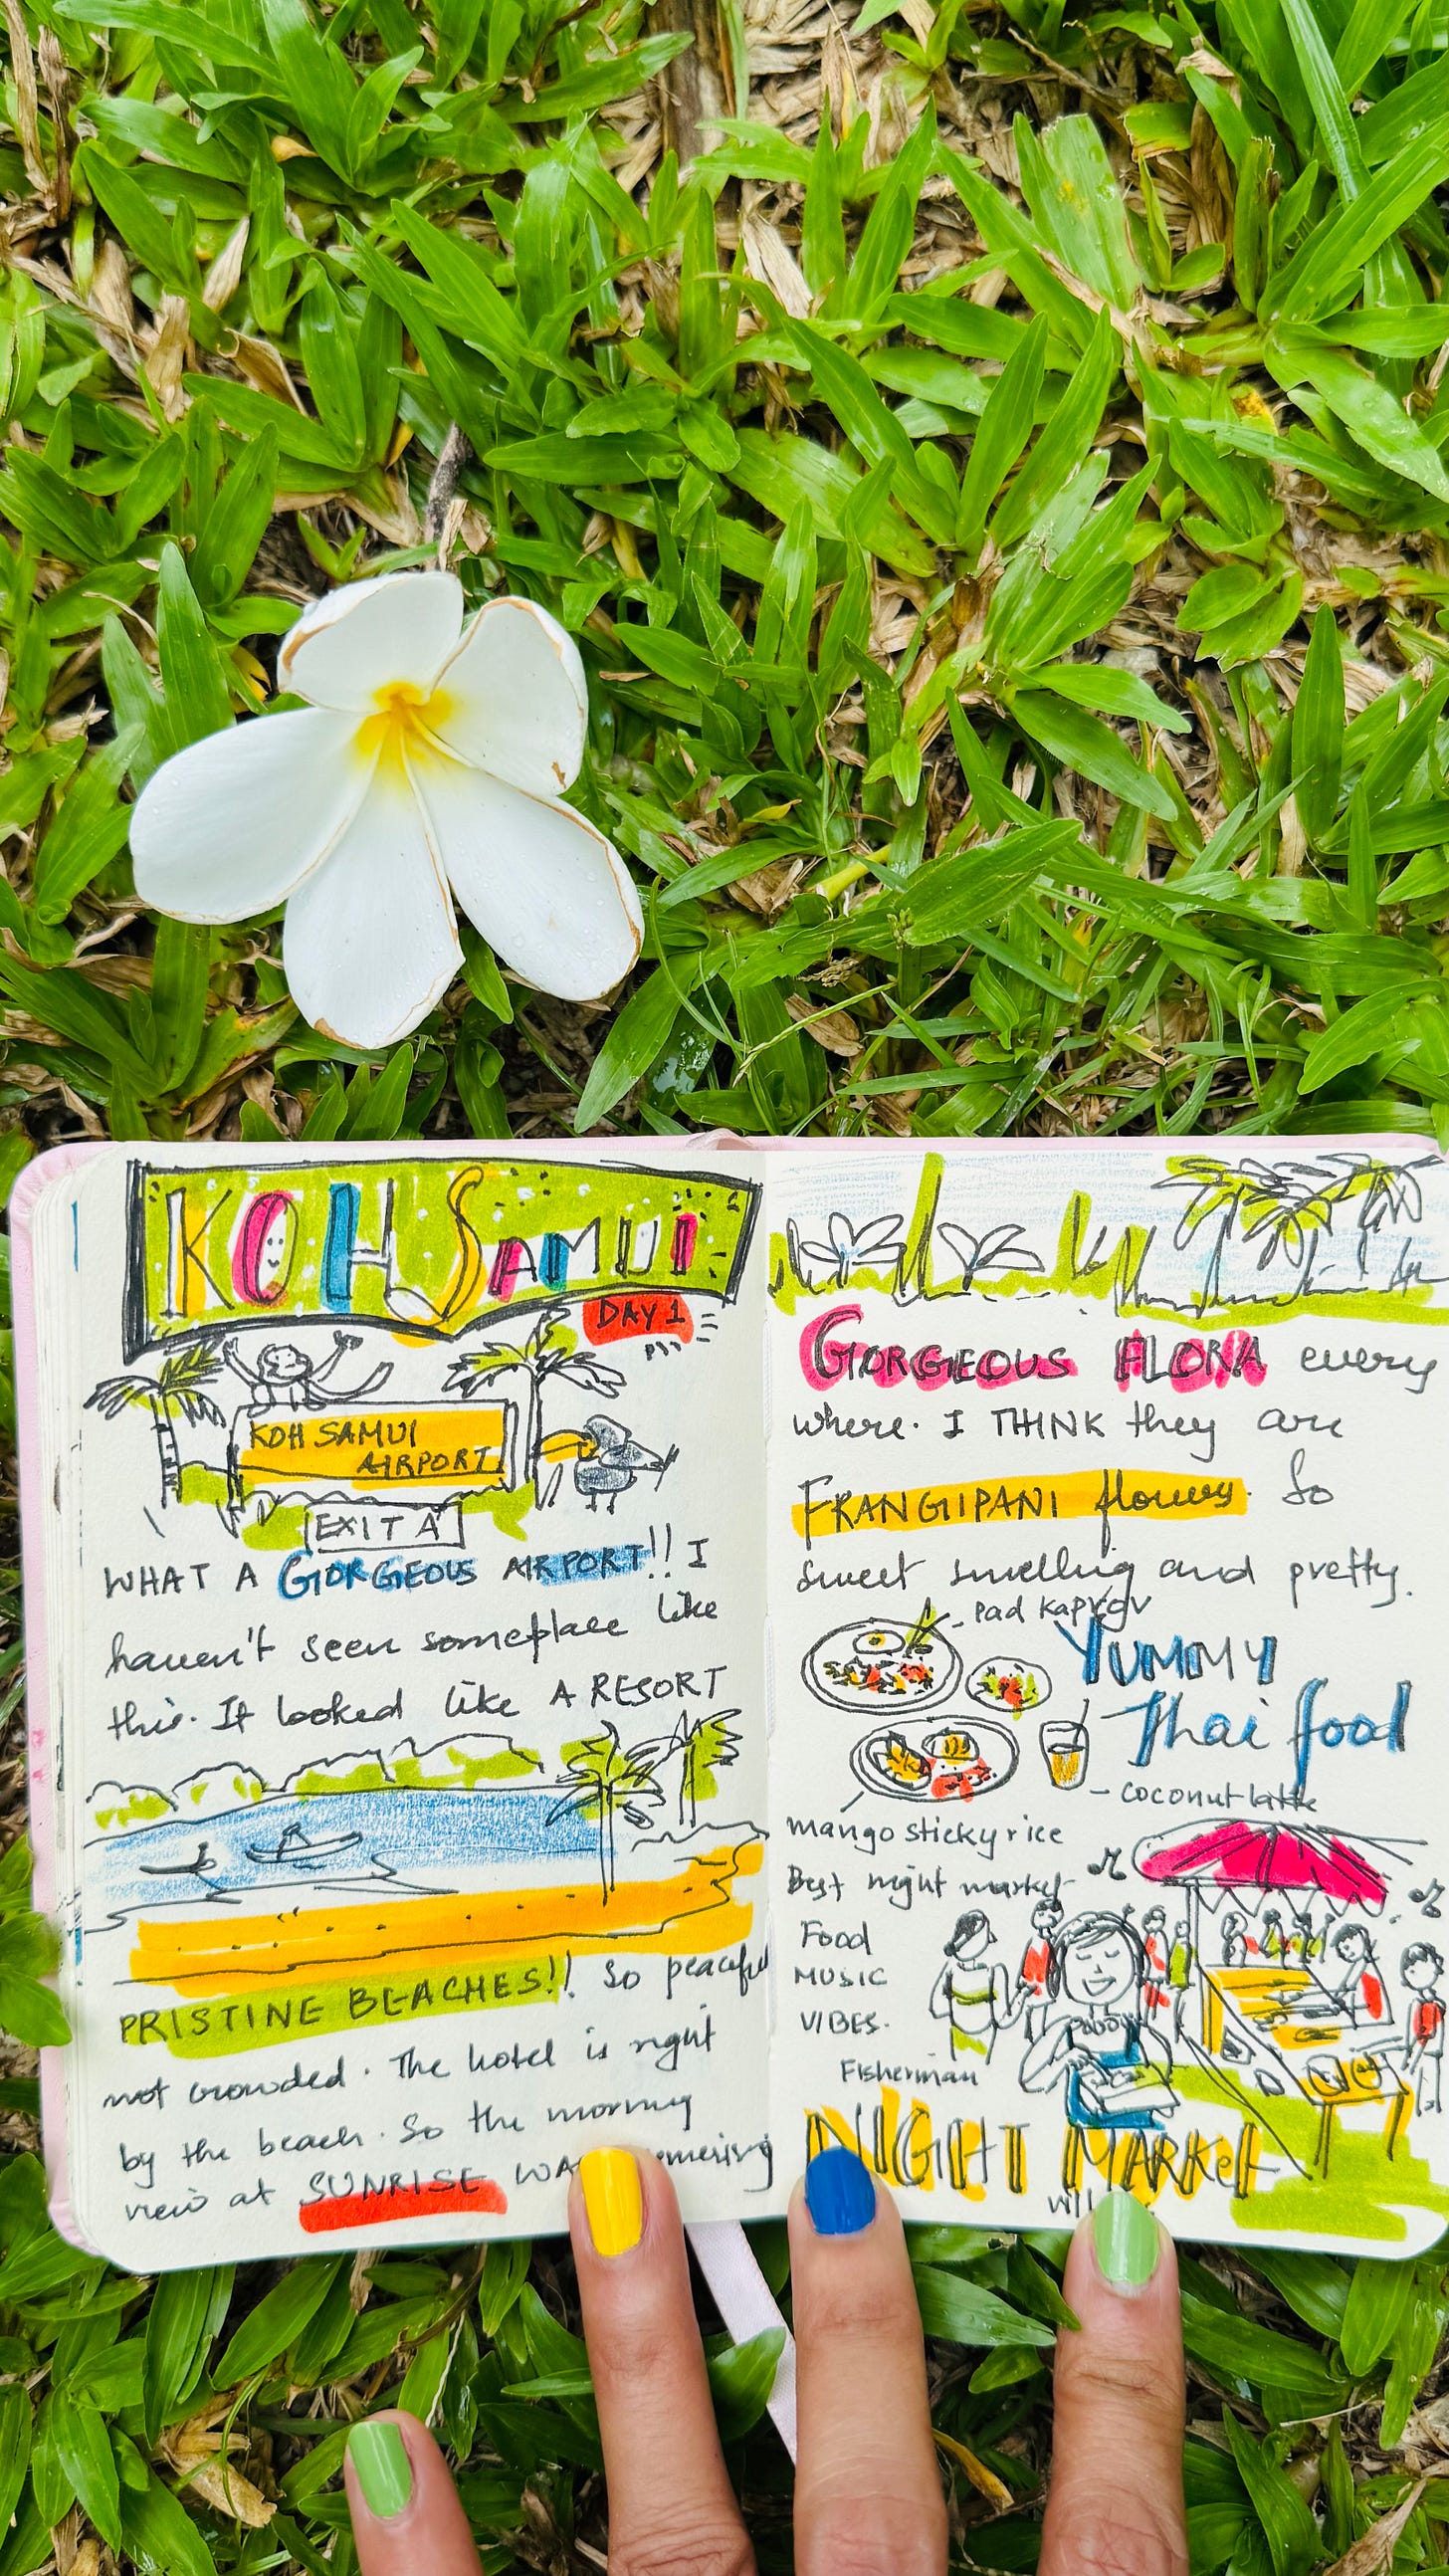 KOH SAMUI
DAY 1
KOH SAMUI
AIRPORT
EXIT A
WHAT A GORGEOUS AIRPORT!! I
haven't seen someplace like
this. It looked like A RESORT
PRISTINE BEACHES!! So peaceful
not crowded. The hotel is right
by the beach. So the morning
view at SUNRISE
GORGEOUS FLORA every
where. I THINK they are
FRANGIPANI flowers. So
sweet smelling and pretty.
Pad Kaprov
YUMMY
Thai food
- coconut latte
mango sticky rice
Best night market
Food
MUSIC
VIBES.
Fisherman
NIGHT MARKET